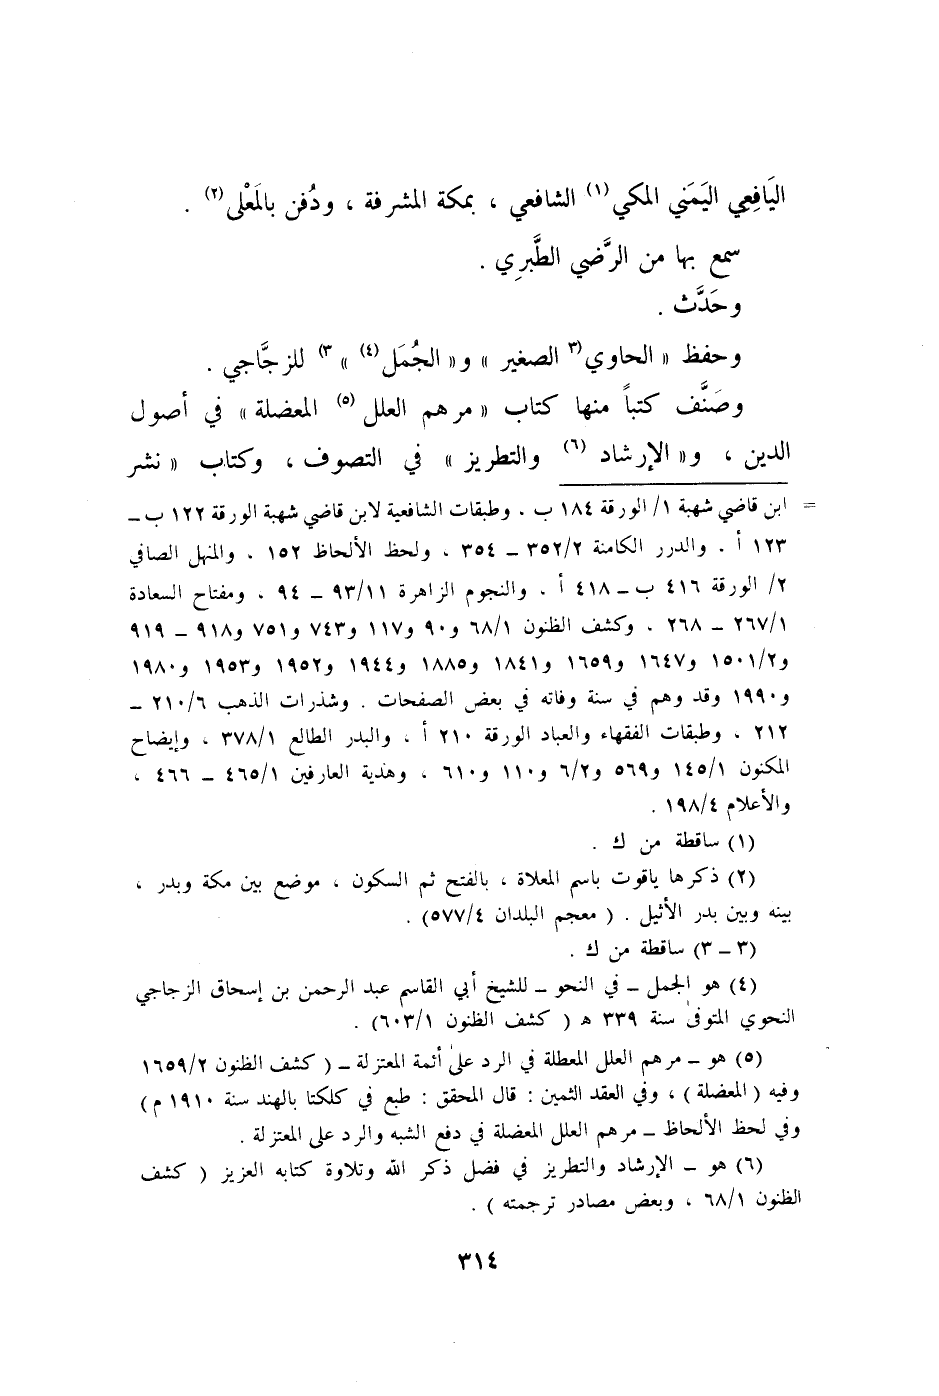 اليَافِعِي اليَمَني المكي(١) الشافعي ، بمكة المشرفة ، ودُفن بالمَعْلى(٢) .
سمع بها من الرَّضي الطَّبرِي .
وحَدَّث .
وحفظ « الحاوي(٣ الصغير » و« الجُمَل(٤) » ٣) للزجَّاجي .
وصَنَّف كتباً منها كتاب « مرهم العلل(٥) المعضلة » في أصول
الدين ، و« الإرشاد(٦) والتطريز » في التصوف ، وكتاب « نشر
= ابن قاضي شهبة ١/ الورقة ١٨٤ ب . وطبقات الشافعية لابن قاضي شهبة الورقة ١٢٢ ب ــ
١٢٣ أ . والدرر الكامنة ٣٥٢/٢ ــ ٣٥٤ . ولحظ الألحاظ ١٥٢ . والمنهل الصافي
٢/ الورقة ٤١٦ ب ــ ٤١٨ أ . والنجوم الزاهرة ٩٣/١١ ــ ٩٤ . ومفتاح السعادة
٢٦٧/١ ــ ٢٦٨ . وكشف الظنون ٦٨/١ و٩٠ و١١٧ و٧٤٣ و٧٥١ و٩١٨ ــ ٩١٩
و١٥٠١/٢ و١٦٤٧ و١٦٥٩ و١٨٤١ و١٨٨٥ و١٩٤٤ و١٩٥٢ و١٩٥٣ و١٩٨٠
و١٩٩٠ وقد وهم في سنة وفاته في بعض الصفحات . وشذرات الذهب ٢١٠/٦ ــ
٢١٢ . وطبقات الفقهاء والعباد الورقة ٢١٠ أ . والبدر الطالع ٣٧٨/١ ، وإيضاح
المكنون ١٤٥/١ و٥٦٩ و٦/٢ و١١٠ و٦١٠ ، وهدية العارفين ٤٦٥/١ ــ ٤٦٦ ،
والأعلام ١٩٨/٤ .
(١) ساقطة من ك .
(٢) ذكرها ياقوت باسم المعلاة ، بالفتح ثم السكون ، موضع بين مكة وبدر ،
بينه وبين بدر الأثيل . ( معجم البلدان ٥٧٧/٤) .
(٣ ــ ٣) ساقطة من ك .
(٤) هو الجمل ــ في النحو ــ للشيخ أبي القاسم عبد الرحمن بن إسحاق الزجاجي
النحوي المتوفى سنة ٣٣٩ ه ( كشف الظنون ٦٠٣/١) .
(٥) هو ــ مرهم العلل المعطلة في الرد على أئمة المعتزلة ــ ( كشف الظنون ١٦٥٩/٢
وفيه ( المعضلة ) ، وفي العقد الثمين : قال المحقق : طبع في كلكتا بالهند سنة ١٩١٠ م )
وفي لحظ الألحاظ ــ مرهم العلل المعضلة في دفع الشبه والرد على المعتزلة .
(٦) هو ــ الإرشاد والتطريز في فضل ذكر الله وتلاوة كتابه العزيز ( كشف
الظنون ٦٨/١ ، وبعض مصادر ترجمته ) .
٣١٤